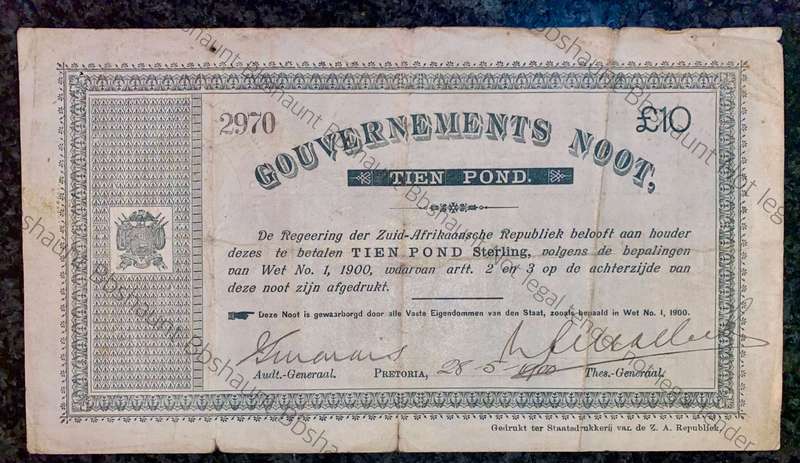 2970
£10
GOUVERNEMENTS NOOT,
TIEN POND.
De Regeering der Zuid-Afrikaansche Republiek belooft aan houder
dezes te betalen TIEN POND Sterling, volgens de bepalingen
van Wet No. 1, 1900, waarvan artt. 2 en 3 op de achterzijde van
deze noot zijn afgedrukt.
Deze Noot is gewaarborgd door alle Vaste Eigendommen van den Staat, zooals bepaald in Wet No. 1, 1900.
Audt.-Generaal. PRETORIA, 28 5 1900 Thes.-Generaal.
Gedrukt ter Staatsdrukkerij van de Z. A. Republiek.
Bbshaunt Bbshaunt Bbshaunt Bbshaunt not legal tender
Bbshaunt Bbshaunt Bbshaunt not legal tender not legal tender